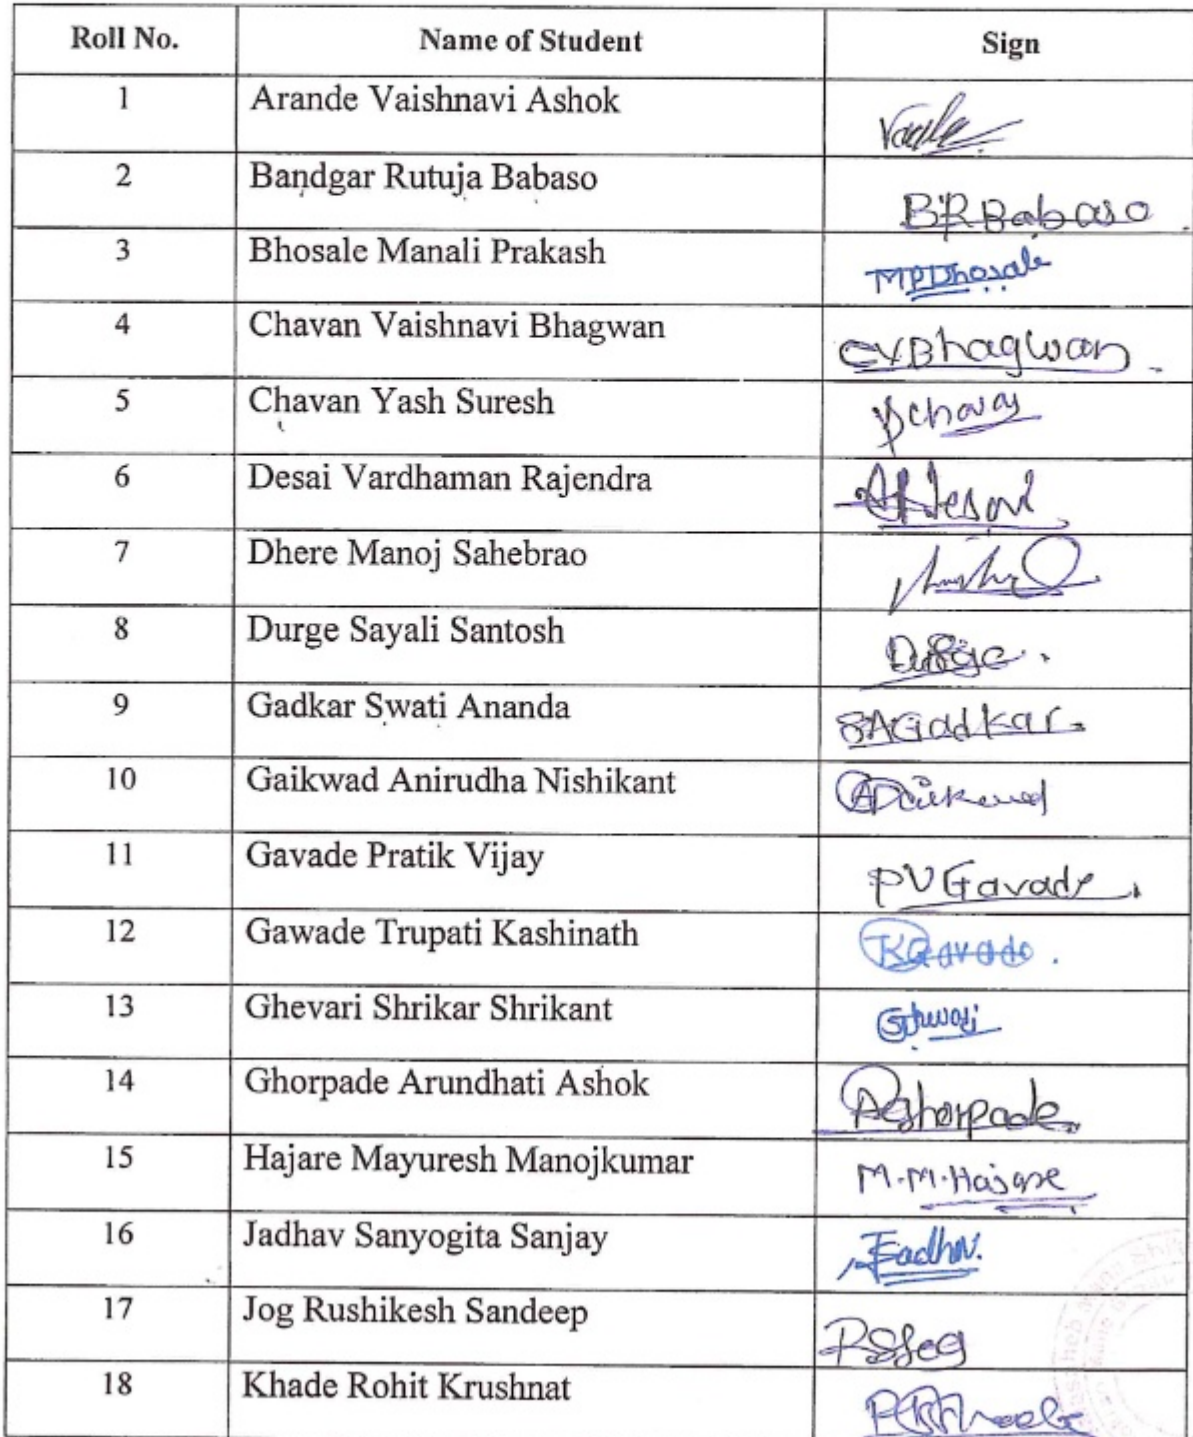 Roll No. Name of Student Sign
1 Arande Vaishnavi Ashok
2 Bandgar Rutuja Babaso BRBabaso
3 Bhosale Manali Prakash MPBhosale
4 Chavan Vaishnavi Bhagwan CVBhagwan
5 Chavan Yash Suresh
6 Desai Vardhaman Rajendra
7 Dhere Manoj Sahebrao
8 Durge Sayali Santosh
9 Gadkar Swati Ananda SAGadkar
10 Gaikwad Anirudha Nishikant
11 Gavade Pratik Vijay PVGavade
12 Gawade Trupati Kashinath
13 Ghevari Shrikar Shrikant
14 Ghorpade Arundhati Ashok AGhorpade
15 Hajare Mayuresh Manojkumar M.M.Hajare
16 Jadhav Sanyogita Sanjay
17 Jog Rushikesh Sandeep
18 Khade Rohit Krushnat